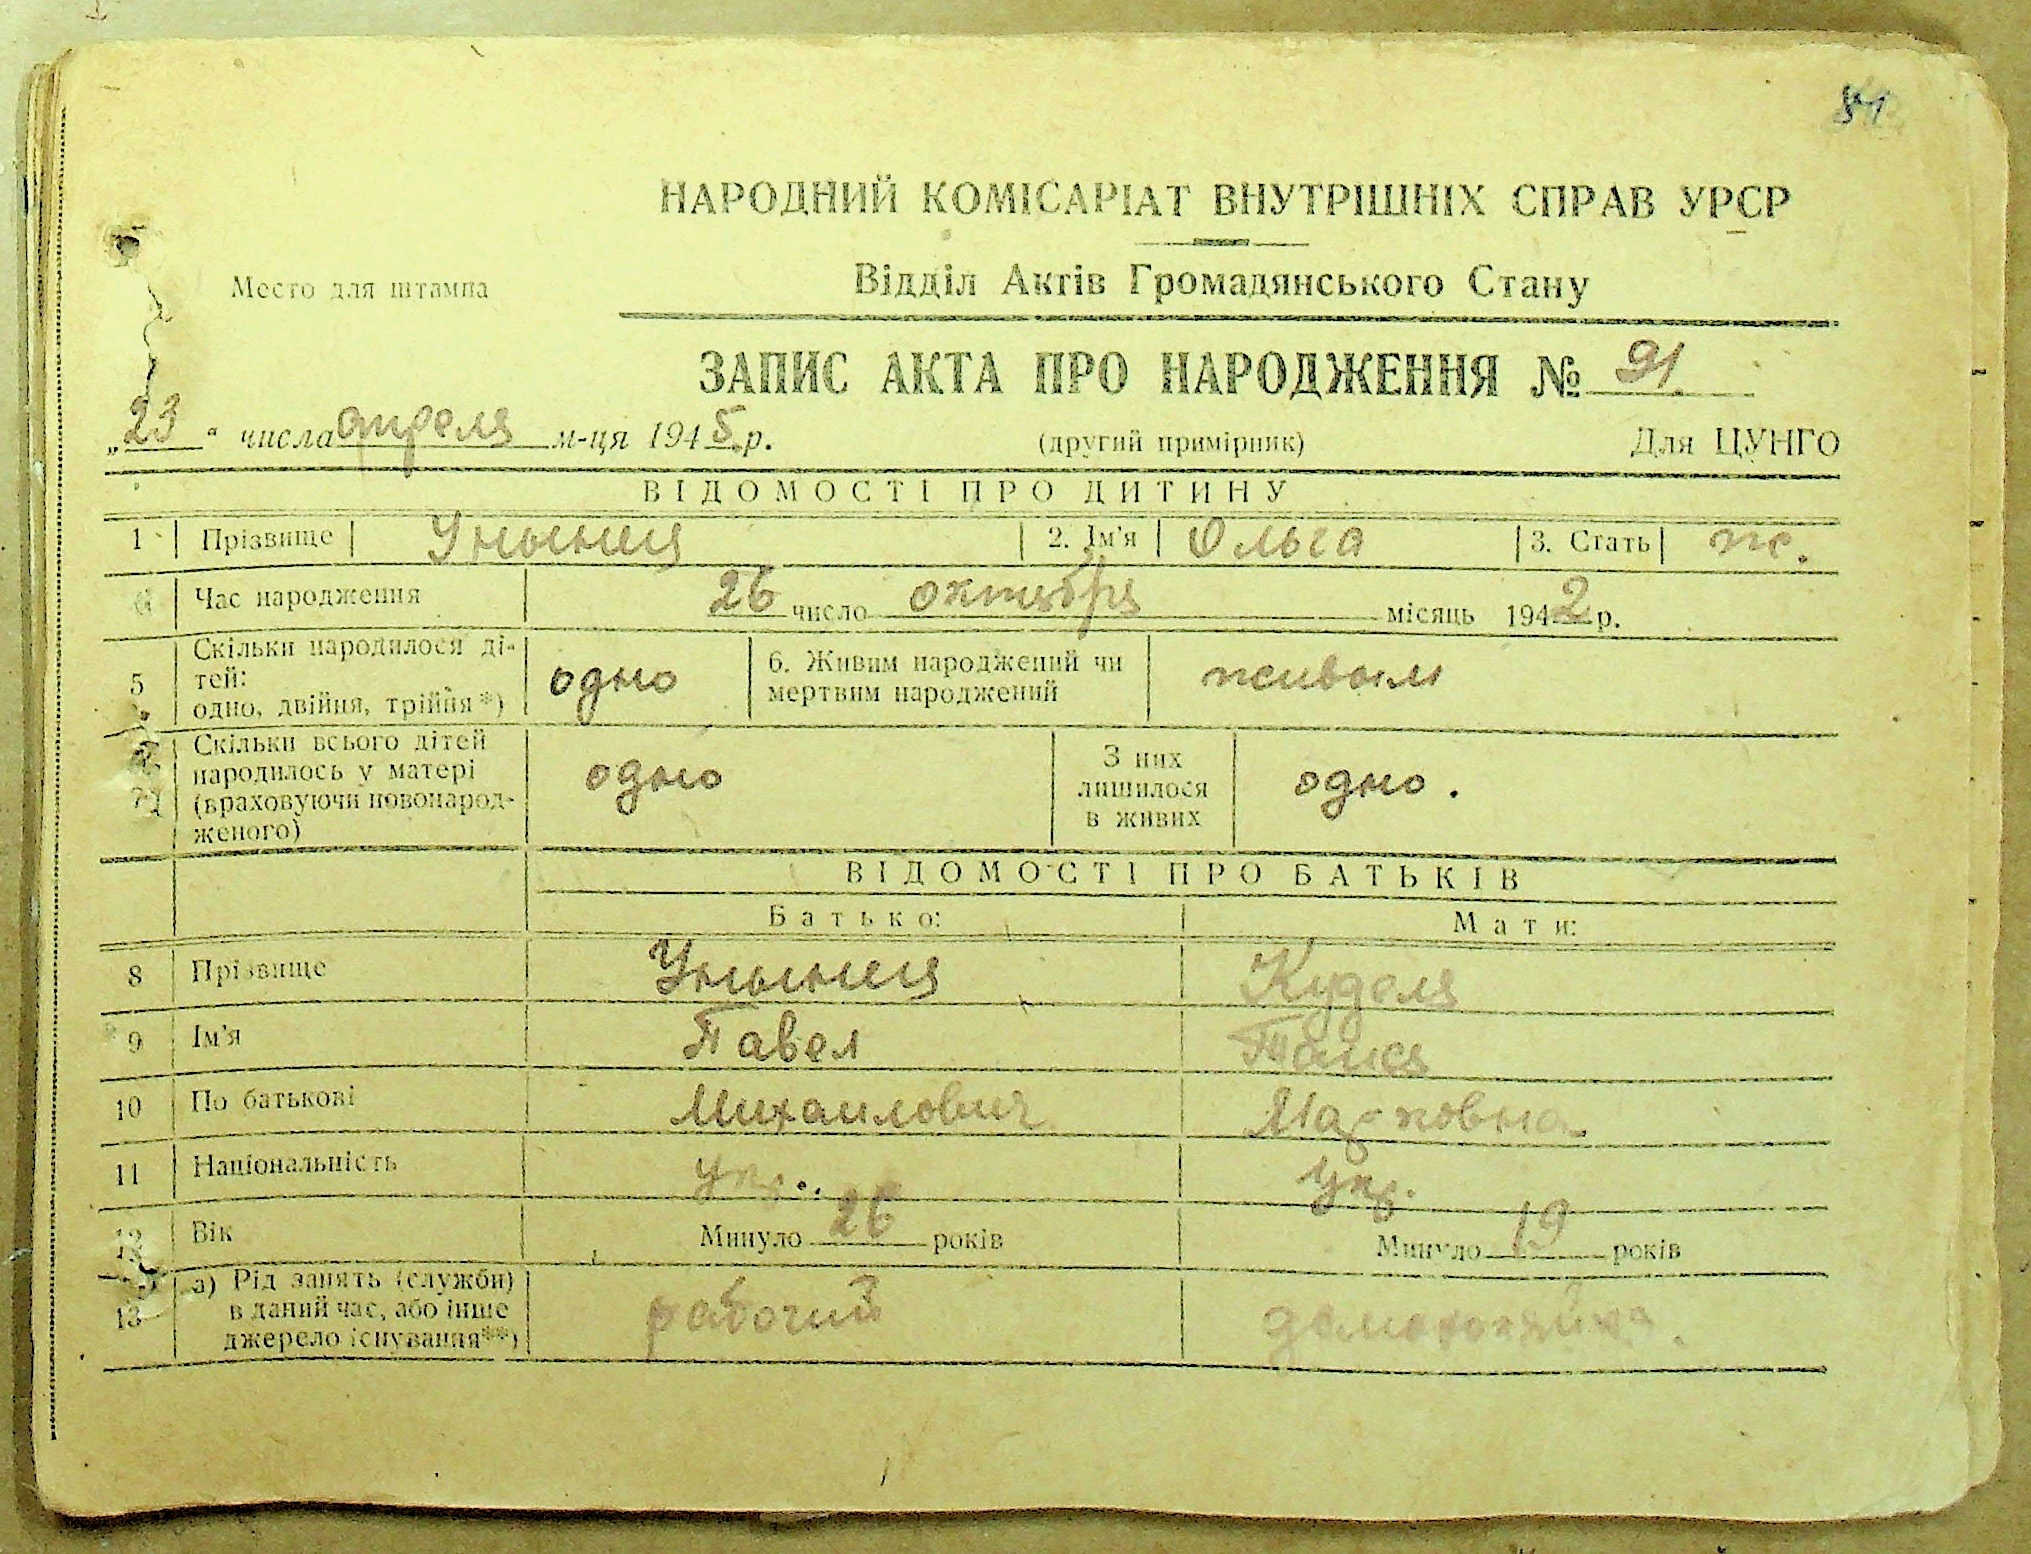 81
НАРОДНИЙ КОМІСАРІАТ ВНУТРІШНІХ СПРАВ УРСР
Место для штампа
Відділ Актів Громадянського Стану
ЗАПИС АКТА ПРО НАРОДЖЕННЯ № 91.
„23“ числа апреля м-ця 1945 р. (другий примірник) Для ЦУНГО
ВІДОМОСТІ ПРО ДИТИНУ
1 Прізвище Уныния 2. Ім'я Ольга 3. Стать ж.
Час народження 26 число октября місяць 1942 р.
5 Скільки народилося ді-
тей:
одно, двійня, трійня*) одно 6. Живим народжений чи
мертвим народжений живым
7 Скільки всього дітей
народилось у матері
(враховуючи новонарод-
женого) одно З них
лишилося
в живих одно.
ВІДОМОСТІ ПРО БАТЬКІВ
Батько: Мати:
8 Прізвище Уныния Куделя
9 Ім'я Павел Таися
10 По батькові Михаилович Марковна
11 Національність укр. укр.
12 Вік Минуло 26 років Минуло 19 років
13 а) Рід занять (служби)
в даний час, або інше
джерело існування**) рабочий домохозяйка.